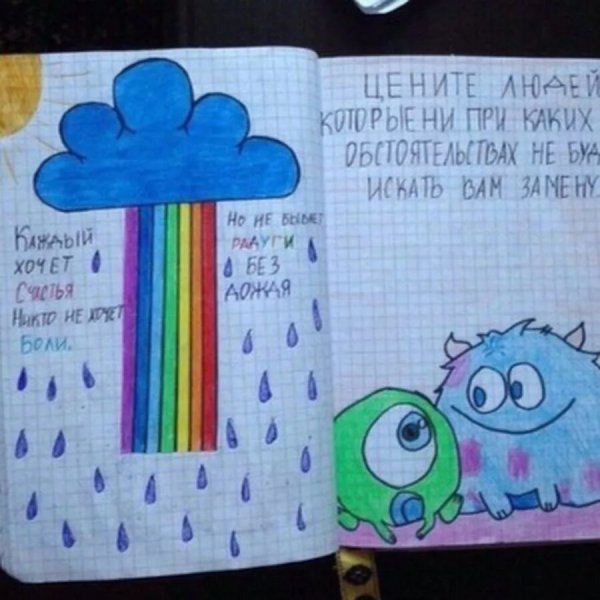 Каждый
хочет
Счастья
Никто не хочет
Боли.
Но не бывает
радуги
без
дождя
ЦЕНИТЕ ЛЮДЕЙ
КОТОРЫЕ НИ ПРИ КАКИХ
ОБСТОЯТЕЛЬСТВАХ НЕ БУД
ИСКАТЬ ВАМ ЗАМЕНУ